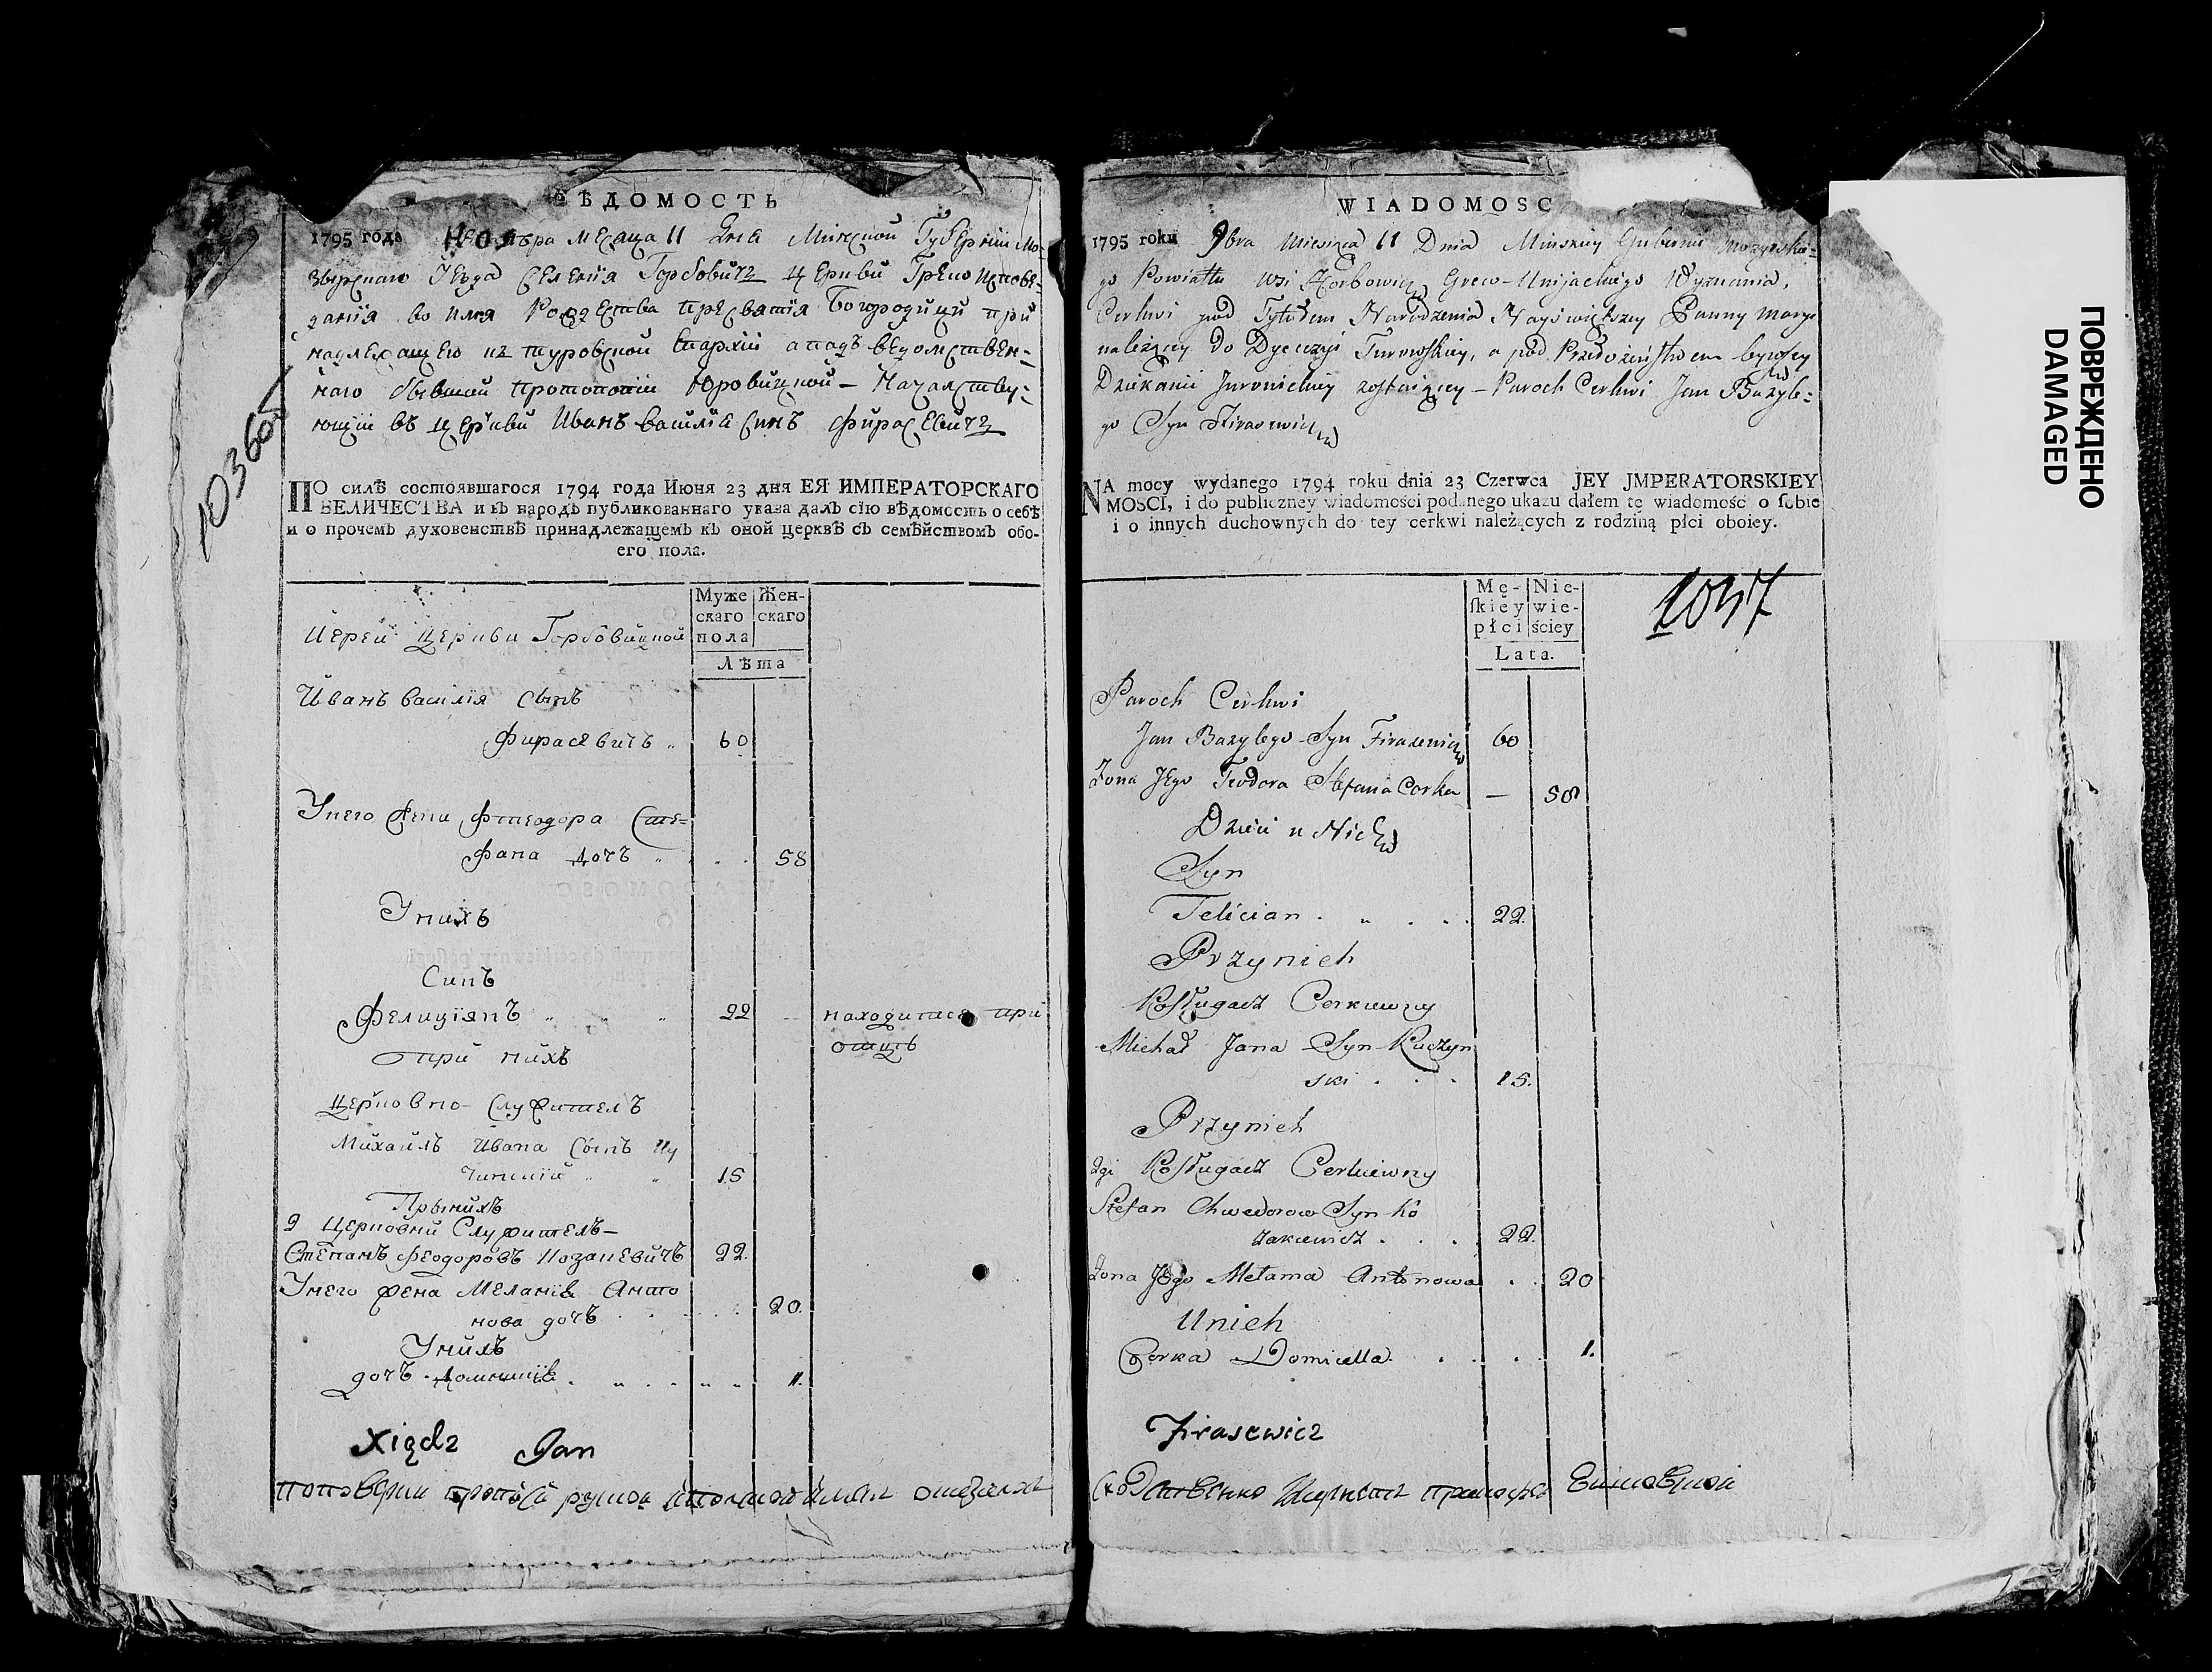 ѢДОМОСТЬ
1795 года Ноября месаца 11 дня Минской Губернии Мо-
зырскаго Уезда селения Горбовичъ церкви Греко испове-
дания во имя Рождества пресватия Богородици при
надлежащего къ туровской Епархии а подъ ведомствен-
наго бывшей протопопии Юровицкой – Началству-
ющии въ церкви Иванъ василия синъ Фирасевичъ
10360
ПО силѣ состоявшагося 1794 года Июня 23 дня ЕЯ ИМПЕРАТОРСКАГО
ВЕЛИЧЕСТВА и въ народъ публикованнаго указа далъ сїю вѣдомость о себѣ
и о прочемъ духовенствѣ принадлежащемъ къ оной церквѣ съ семѣйствомъ обо-
его пола.
Муже скаго пола
Жен- скаго
Лѣта
Иерей церкви Горбовицкой
Иванъ василия сынъ
Фирасевичъ 60
Унего жена Фтеодора Сте-
фана дочъ 58
Унихъ
Синъ
Фелициянъ 22 находитася при
отцъ
при нихъ
Церковно-служителъ
Михаилъ Ивана сынъ Ку
чинский 15
Прынихъ
2 Церковни Служителъ –
Степанъ Феодоровъ Козакевичъ 22.
Унего жена Мелания Анто
нова дочъ 20.
Унихъ
дочъ 1.
Xiądz Jan
WIADOMOSC
1795 roku 9bra Miesiąca 11 Dnia Minskiey Gubernii Mozyrskie-
go Powiatu Wsi Horbowicz Greco-Unijackiego Wyznania,
Cerkwi pod Tytułem Narodzenia Nayświętszey Panny Maryi
należącey do Dyecezyi Turowskiey, a pod Przełożeństwem bywszey
Dziekanii Jurowickiey zostaiącey – Paroch Cerkwi Jan Bazyle-
go Syn Firasewicz
NA mocy wydanego 1794 roku dnia 23 Czerwca JEY JMPERATORSKIEY
MOSCI, i do publiczney wiadomości podanego ukazu dałem tę wiadomość o sobie
i o innych duchownych do tey cerkwi należących z rodziną płci oboiey.
Mę- skiey płci
Nie- wie- ściey
Lata.
1037
Paroch Cerkwi
Jan Bazylego Syn Firasewicz 60
Zona Jego Teodora Stefana Corka — 58
Dzieci u Nich
Syn
Felician 22.
Przynich
Posługacz Cerkiewny
Michał Jana Syn Kuczyn
ski 15.
Przynich
2gi Posługacz Cerkiewny
Stefan Chwedorow Syn Ko
zakiewicz 22.
Zona Jego Melania Antonowa 20
Unich
Corka Domicella 1.
Firasewicz
ПОВРЕЖДЕНО
DAMAGED